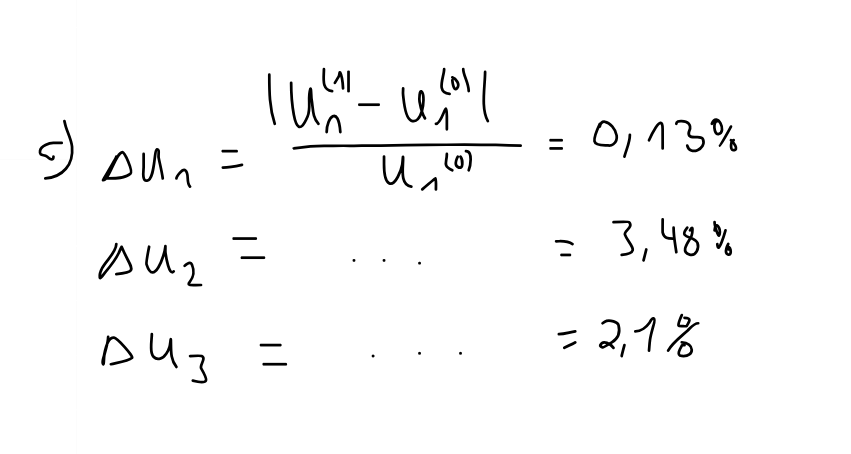 c) Δu₁ = |u₁⁽¹⁾ - u₁⁽⁰⁾| / u₁⁽⁰⁾ = 0,13%
Δu₂ = . . . = 3,48%
Δu₃ = . . . = 2,1%